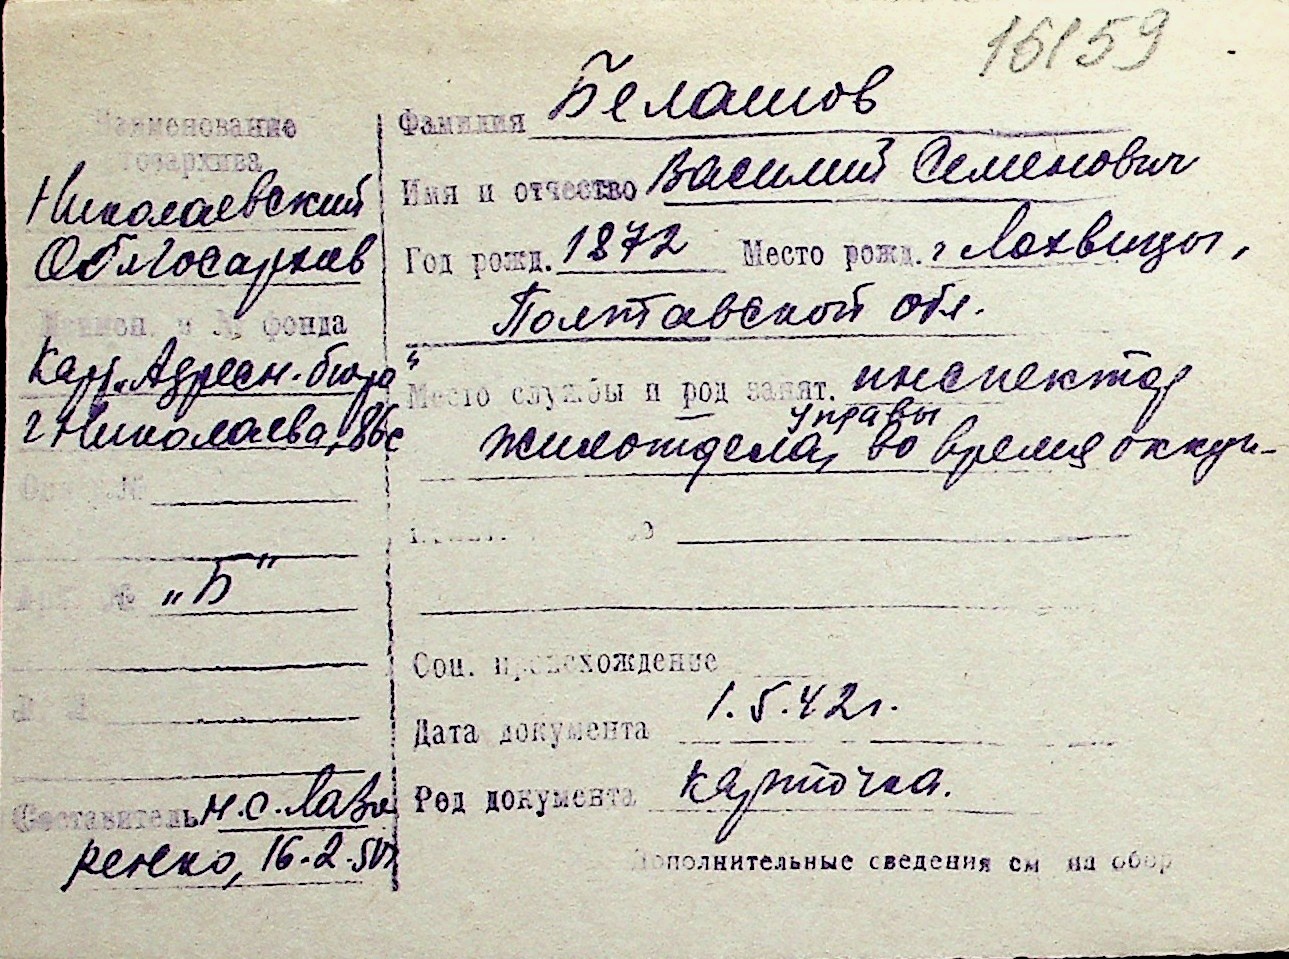 16159
Наименование
госархива
Николаевский
Облгосархив
Наимен. и № фонда
Карт. „Адресн. бюро“
г. Николаева, 86с
Опись №
„Б“
Составитель Н. С. Лавре
ренко, 16-2-50г
Фамилия Белашов
Имя и отчество Василий Семенович
Год рожд. 1872 Место рожд. г Лохвицы,
Полтавской обл.
Место службы и род занят. инспектор
управы
жилотдела, во время оккуп-
Соц. происхождение
Дата документа 1.5.42г.
Род документа карточка.
Дополнительные сведения см на обор